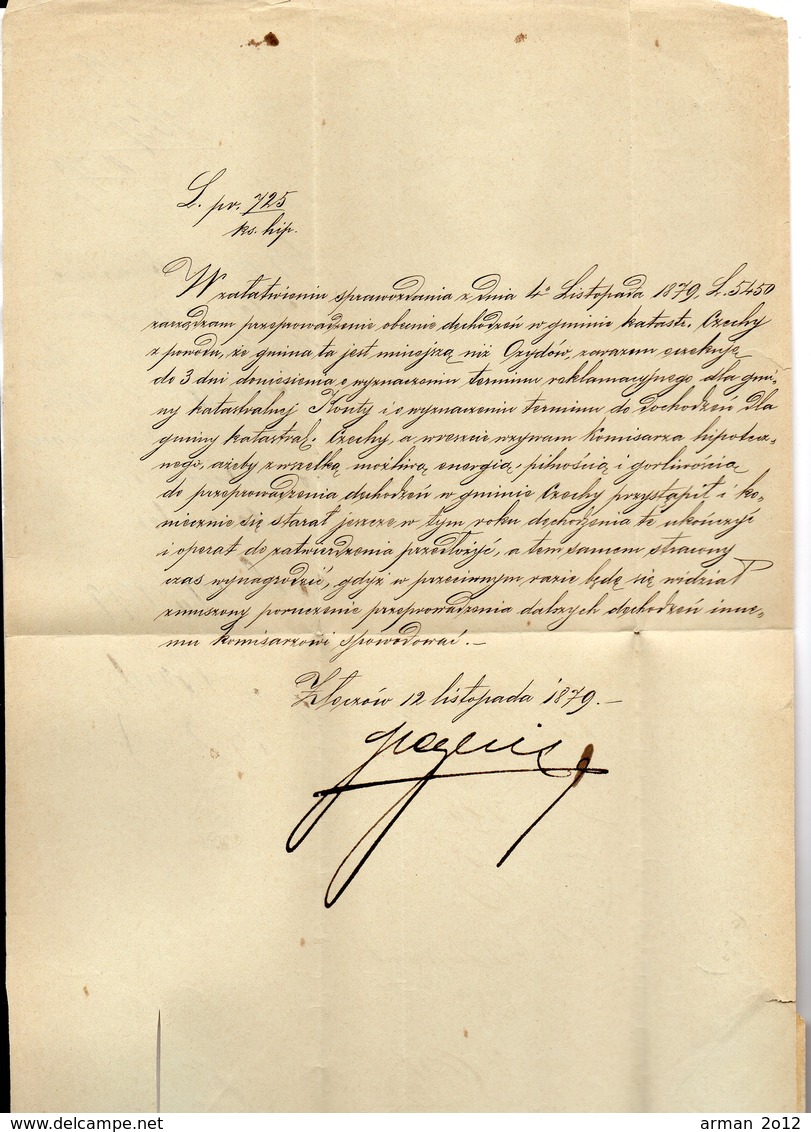 L. pr. 725
ks. hip.
W załatwieniu sprawozdania z dnia 4o Listopada 1879, L. 5450
zarządzam przeprowadzenie obecnie dochodzeń w gminie katastr. Czechy
z powodu, że gmina ta jest mniejszą niż Ożydów, zarazem oczekuję
do 3 dni doniesienia o wyznaczeniu terminu reklamacyjnego dla gmi-
ny katastralnej Kouty i o wyznaczeniu terminu do dochodzeń dla
gminy katastral. Czechy, a wreszcie wzywam Komisarza hipotecz-
nego, ażeby z wszelką możliwą energią, pilnością i gorliwością
do przeprowadzenia dochodzeń w gminie Czechy przystąpił i ko-
niecznie się starał jeszcze w tym roku dochodzenia te ukończyć
i operat do zatwierdzenia przedłożyć, a tem samem stracony
czas wynagrodzić, gdyż w przeciwnym razie będę się widział
zmuszony poruczenie przeprowadzenia dalszych dochodzeń inne-
mu komisarzowi spowodować. –
Złoczów 12 listopada 1879. –
www.delcampe.net
arman 2o12